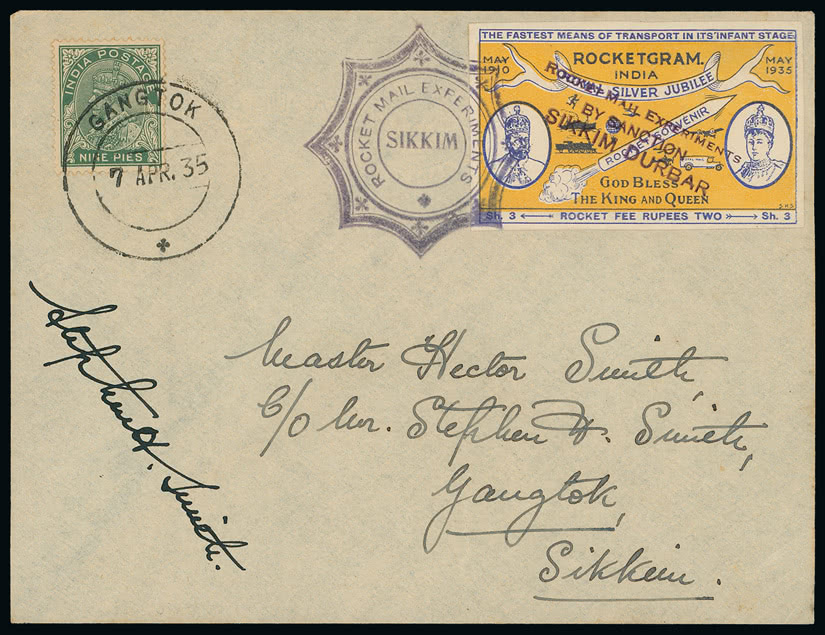 INDIA POSTAGE
NINE PIES
GANGTOK
7 APR. 35
ROCKET MAIL EXPERIMENTS
SIKKIM
THE FASTEST MEANS OF TRANSPORT IN ITS INFANT STAGE
MAY 1910
ROCKETGRAM.
MAY 1935
INDIA
SILVER JUBILEE
ROCKET MAIL EXPERIMENTS
BY SANCTION
SIKKIM DURBAR
ROCKET SOUVENIR
GOD BLESS
THE KING AND QUEEN
Sh. 3 ROCKET FEE RUPEES TWO Sh. 3
Master Hector Smith,
C/o Mr. Stephen H. Smith,
Gangtok,
Sikkim.
Stephen H. Smith.